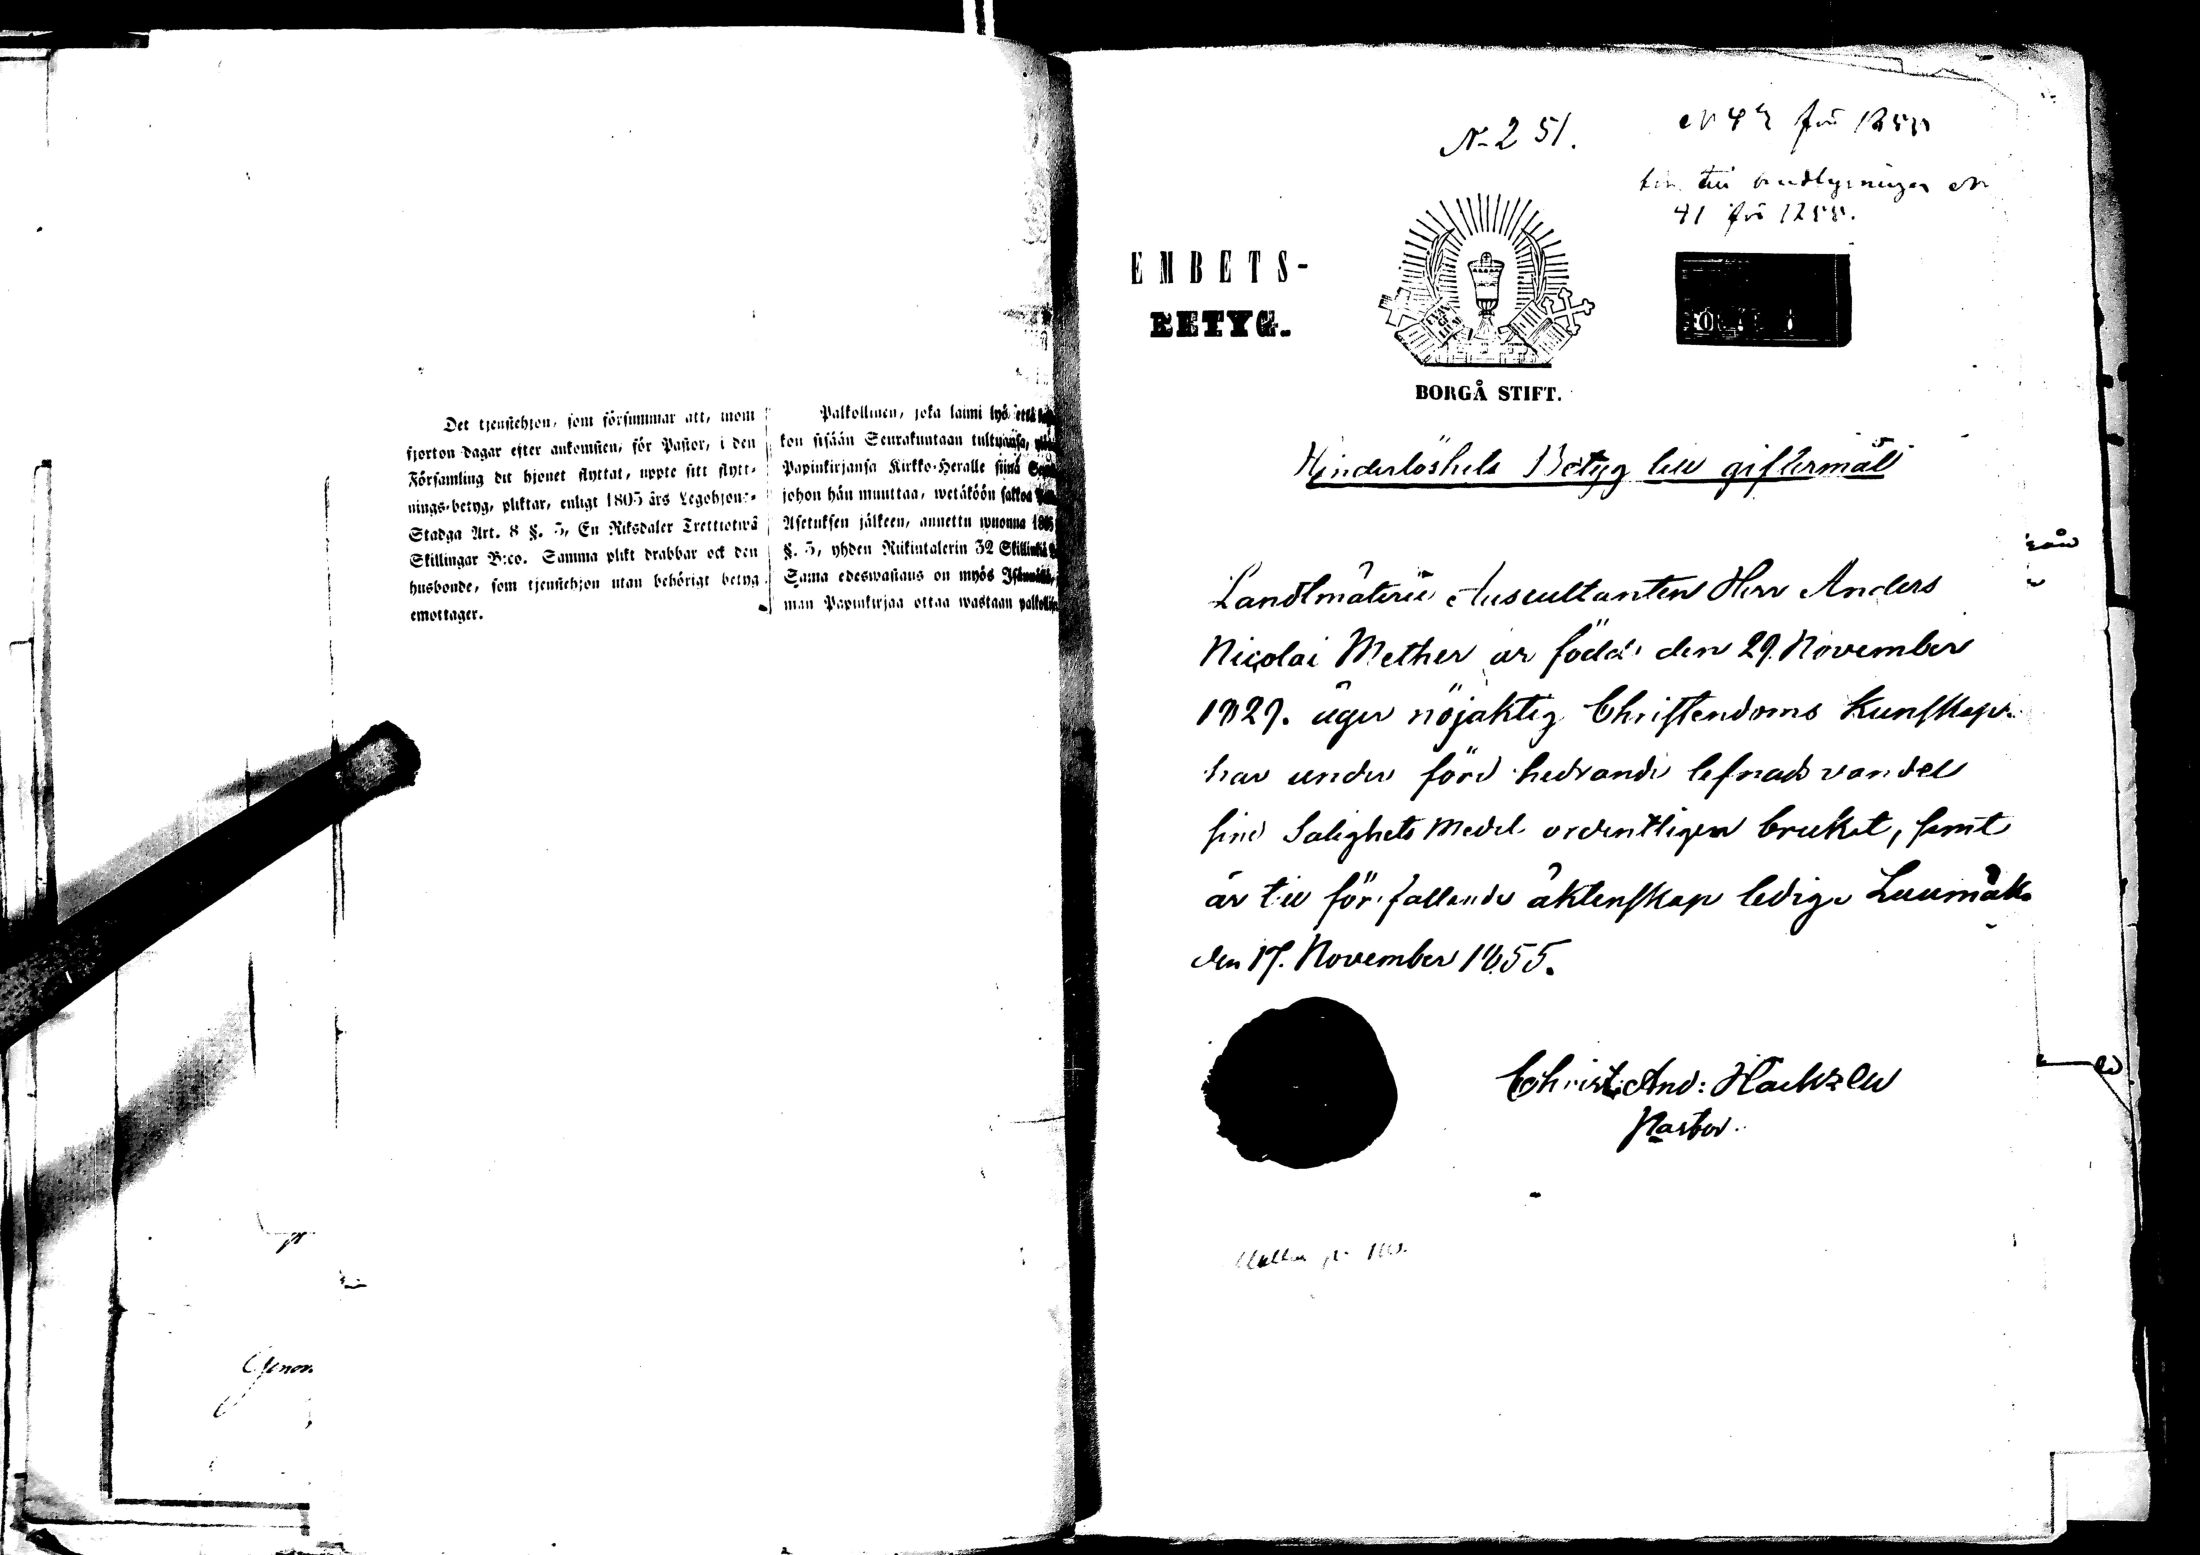 Det tjenstehjon, som försummar att, inom
fjorton dagar efter ankomsten, för Pastor, i den
Församling dit hjonet flyttat, uppte sitt flytt-
nings-betyg, pliktar, enligt 1805 års Legohjons-
Stadga Art. 8 §. 5, En Riksdaler Trettiotwå
Skillingar B:co. Samma plikt drabbar ock den
husbonde, som tjenstehjon utan behörigt betyg
emottager.
Palkollinen, joka laimi lyö, että
kon sisään Seurakuntaan tultuansa,
Papinkirjansa Kirkko-Herralle siinä
johon hän muuttaa, wetäköön sakkoa
Asetuksen jälkeen, annettu wuonna 1805
§. 5, yhden Riikintalerin 32 Skillinkiä
Sama edeswastaus on myös Isännällä,
man Papinkirjaa ottaa wastaan
N 251.
N 42 för 1855
hör till andlysningen N
41 för 1855.
EMBETS-
BETYG.
EVAN
GE
LIUM
BORGÅ STIFT.
Hinderlöshets Betyg till giftermål
Landtmäteri Auscultanten Herr Anders
Nicolai Mether är född den 29. November
1829. äger nöjaktig Christendoms Kunskap
har under förd hedrande lefnads vandel
sine Salighets Medel ordentligen brukat, samt
är till förefallande äktenskap ledig. Luumäki
den 17. November 1855.
Christ: And: Hackzell
Pastor.
Genom